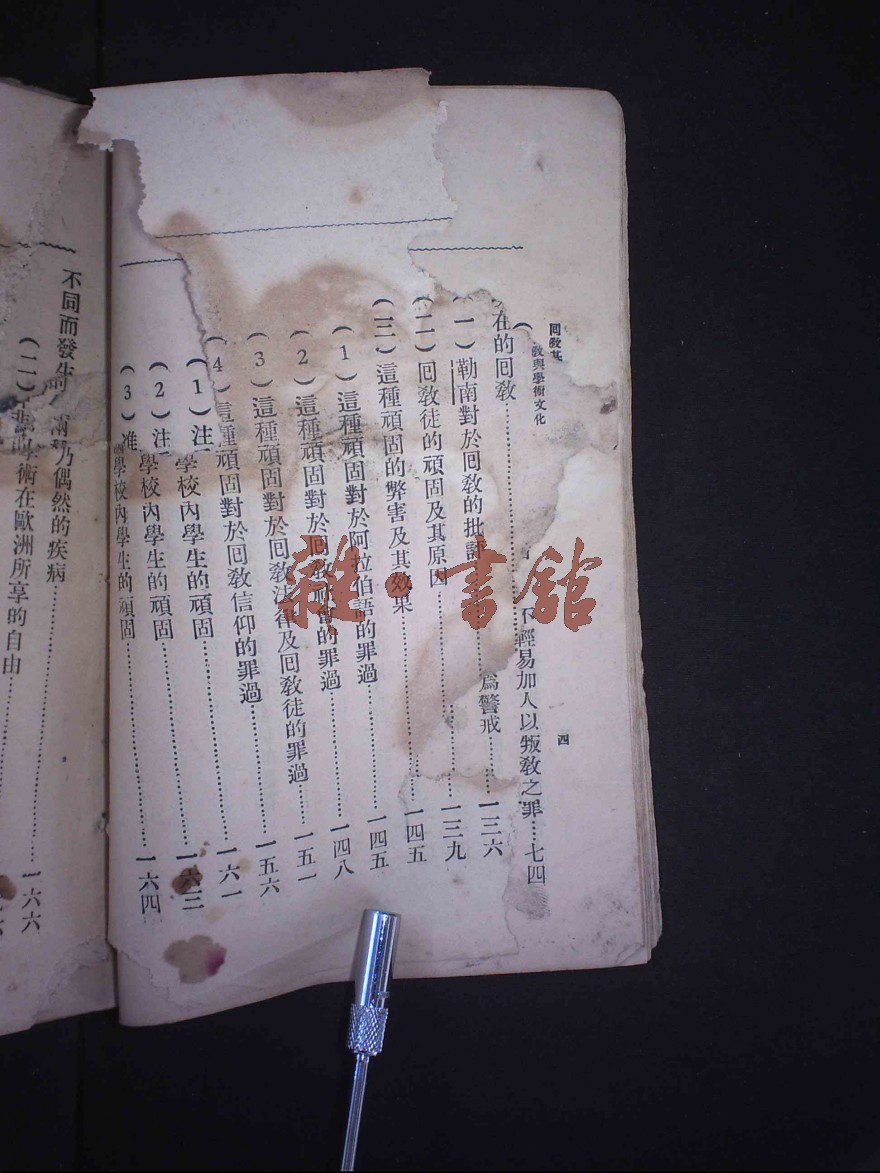 回教基
教與學術文化
四
不輕易加人以叛教之罪……七四
在的回教……為警戒……一三六
(一)勒南對於回教的批評……一三九
(二)回教徒的頑固及其原因……一四五
(三)這種頑固的弊害及其效果……一四五
(1)這種頑固對於阿拉伯語的罪過……一四八
(2)這種頑固對於回教社會的罪過……一五一
(3)這種頑固對於回教法律及回教徒的罪過……一五六
(4)這種頑固對於回教信仰的罪過……一六一
(1)注 學校內學生的頑固……一六三
(2)注 學校內學生的頑固……一六四
(3)准 學校內學生的頑固
不同而發生 乃偶然的疾病……一六六
(二) 學術在歐洲所享的自由
雜·書館